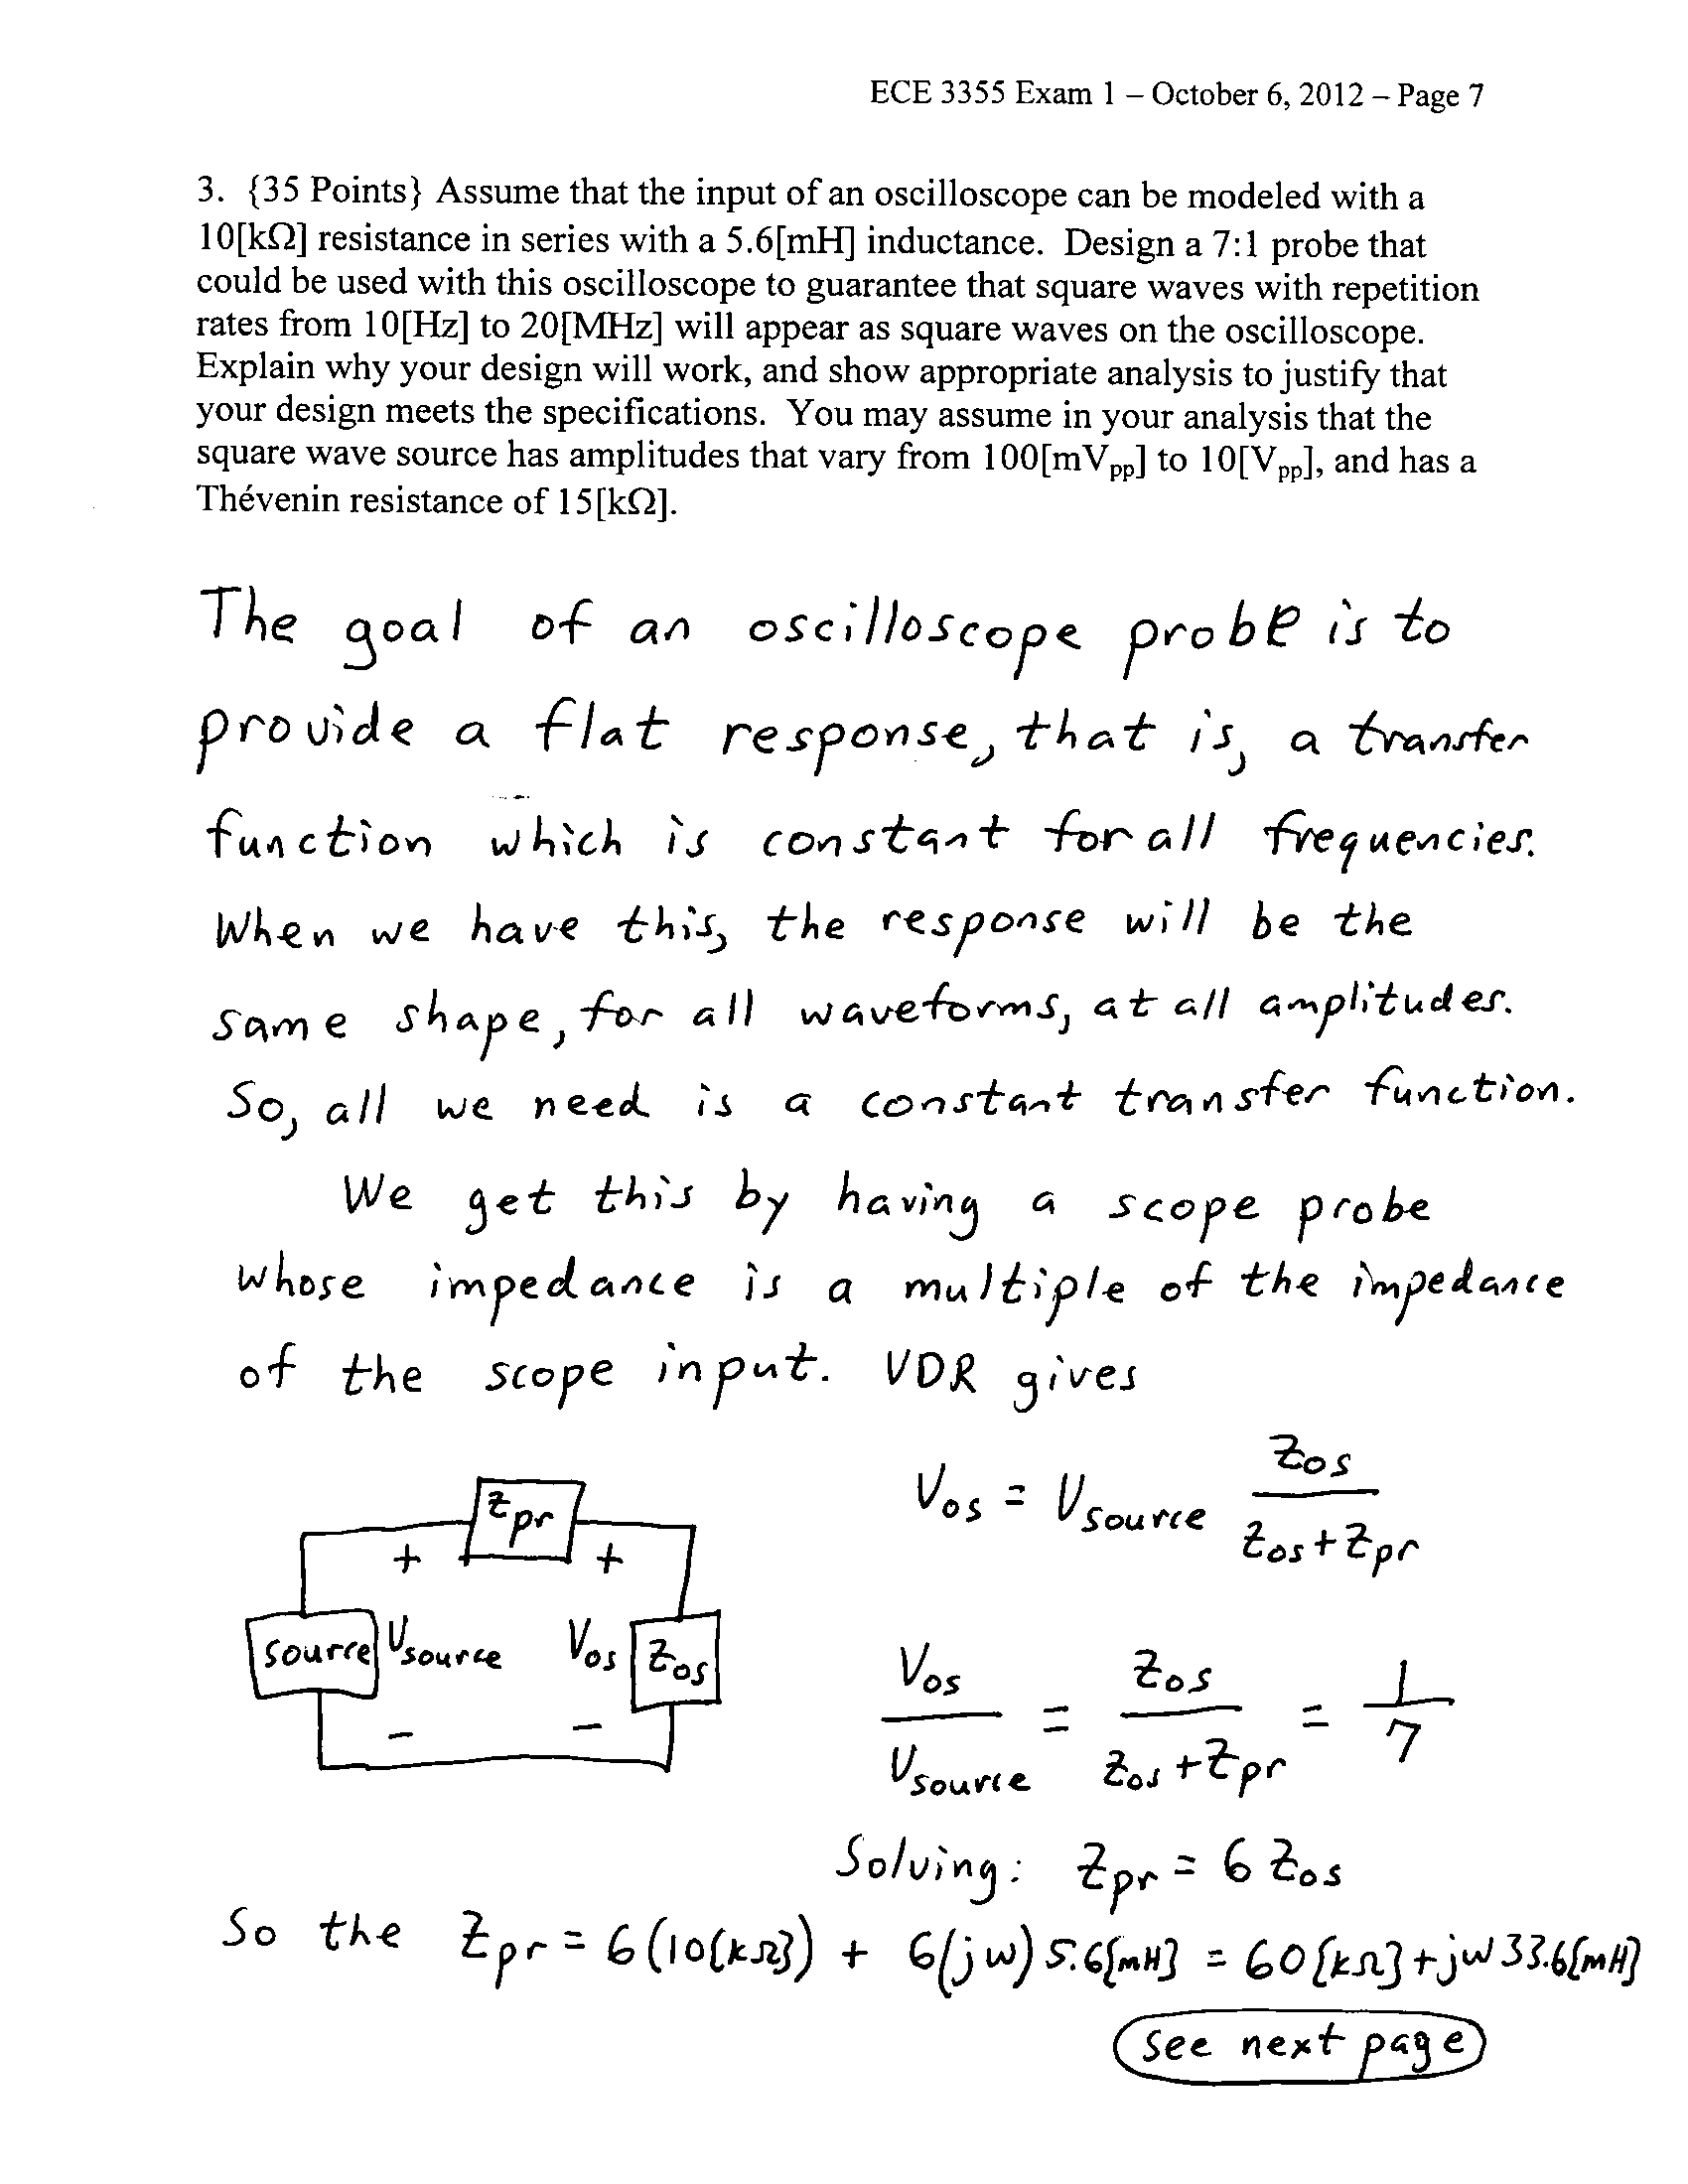 ECE 3355 Exam 1 – October 6, 2012 – Page 7
3. {35 Points} Assume that the input of an oscilloscope can be modeled with a
10[kΩ] resistance in series with a 5.6[mH] inductance. Design a 7:1 probe that
could be used with this oscilloscope to guarantee that square waves with repetition
rates from 10[Hz] to 20[MHz] will appear as square waves on the oscilloscope.
Explain why your design will work, and show appropriate analysis to justify that
your design meets the specifications. You may assume in your analysis that the
square wave source has amplitudes that vary from 100[mVpp] to 10[Vpp], and has a
Thévenin resistance of 15[kΩ].
The goal of an oscilloscope probe is to
provide a flat response, that is, a transfer
function which is constant for all frequencies.
When we have this, the response will be the
same shape, for all waveforms, at all amplitudes.
So, all we need is a constant transfer function.
We get this by having a scope probe
whose impedance is a multiple of the impedance
of the scope input. VDR gives
Vos = Vsource Zos / (Zos + Zpr)
Zpr
+ +
source Vsource Vos Zos
- -
Vos / Vsource = Zos / (Zos + Zpr) = 1/7
Solving: Zpr = 6 Zos
So the Zpr = 6(10[kΩ]) + 6(jω) 5.6[mH] = 60[kΩ] + jω 33.6[mH]
see next page